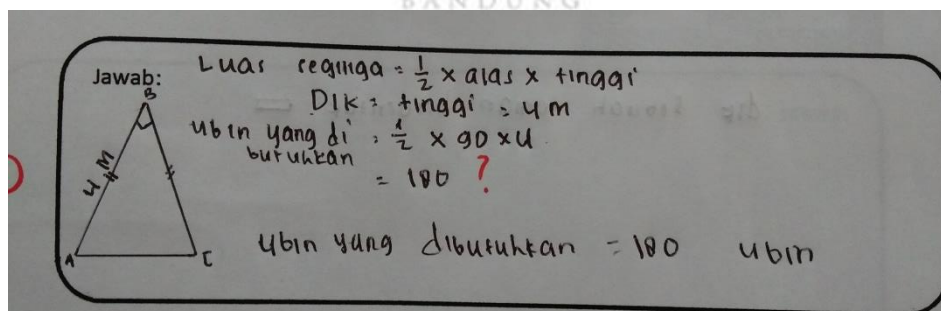 BANDUNG
Jawab:
Luas segitiga = 1/2 x alas x tinggi
Dik = tinggi = 4 m
ubin yang di butuhkan = 1/2 x 90 x 4
= 180 ?
ubin yang dibutuhkan = 180 ubin
B
4 M
A
C